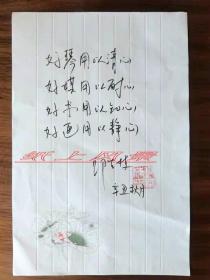 好琴用以清心
好媒用以耐心
好书用以知心
好画用以静心
纸上风景
辛丑秋月